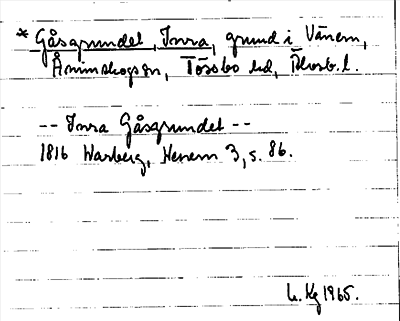 * Gåsgrundet, Inra, grund i Vänern,
Åminskogs sn, Tössbo hd, Älvsb. l.
-- Inra Gåsgrundet --
1816 Warberg, Wenern 3, s. 86.
1965.